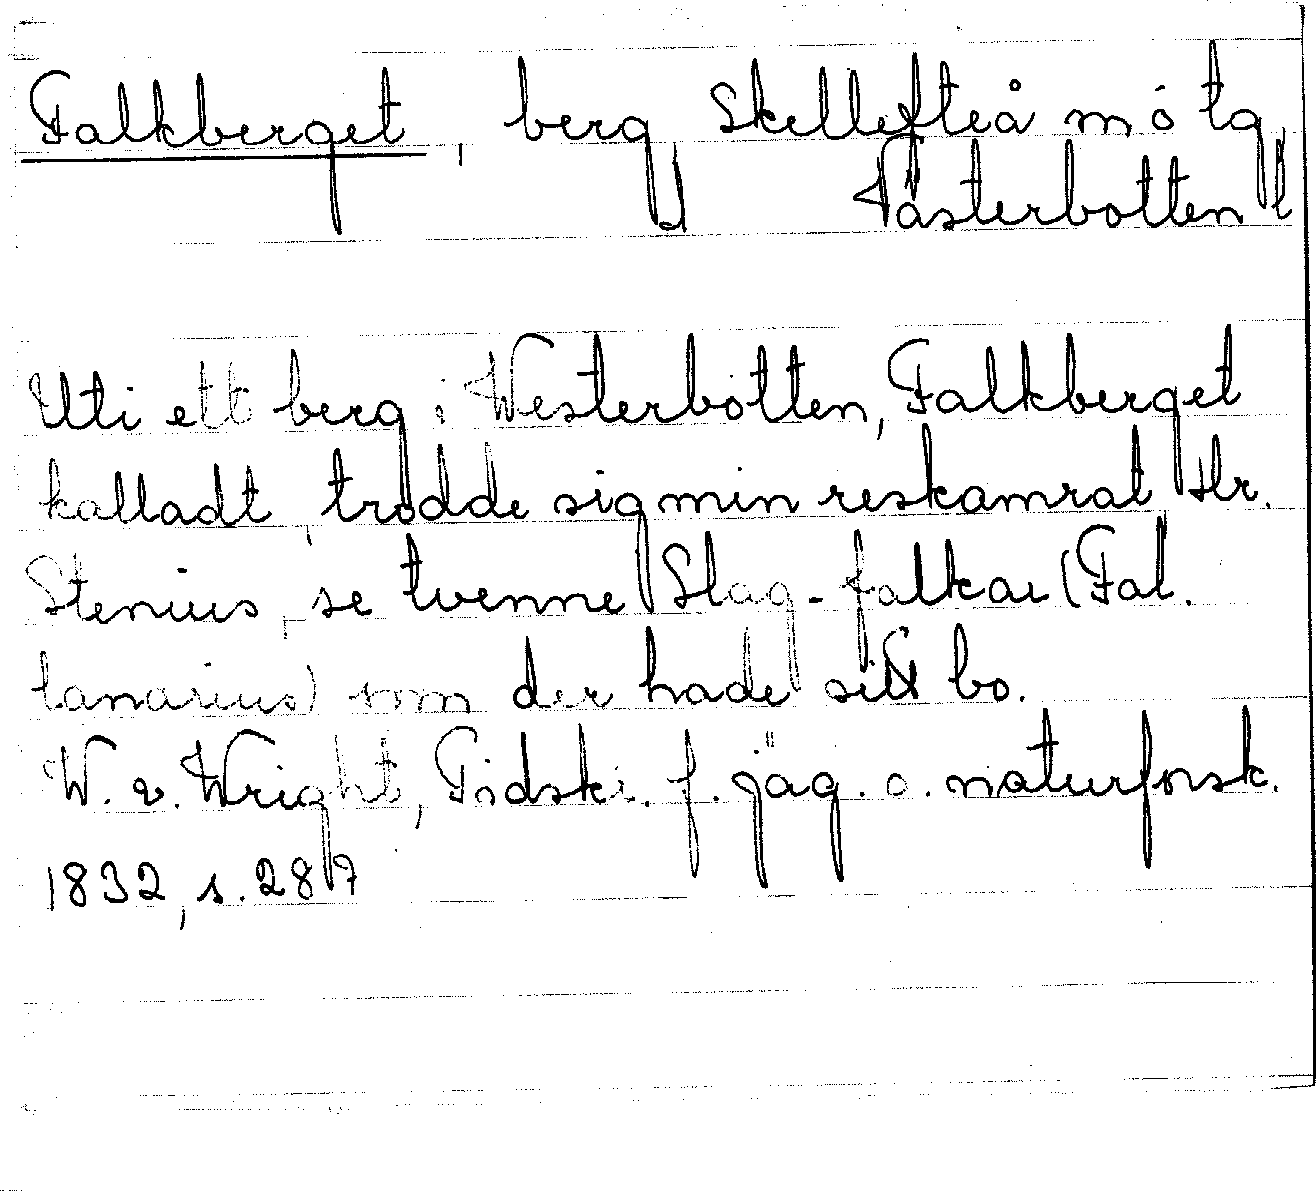 Falkberget, berg Skellefteå m ö tg,
Västerbotten l
Uti ett berg i Westerbotten, Falkberget
kalladt, trodde sig min reskamrat Hr.
Stenius, se tvenne Slag-falkar (Fal.
lanarius) som der hade sitt bo.
W. v. Wright, Tidskr. f. jäg. o. naturforsk.
1832, s. 287